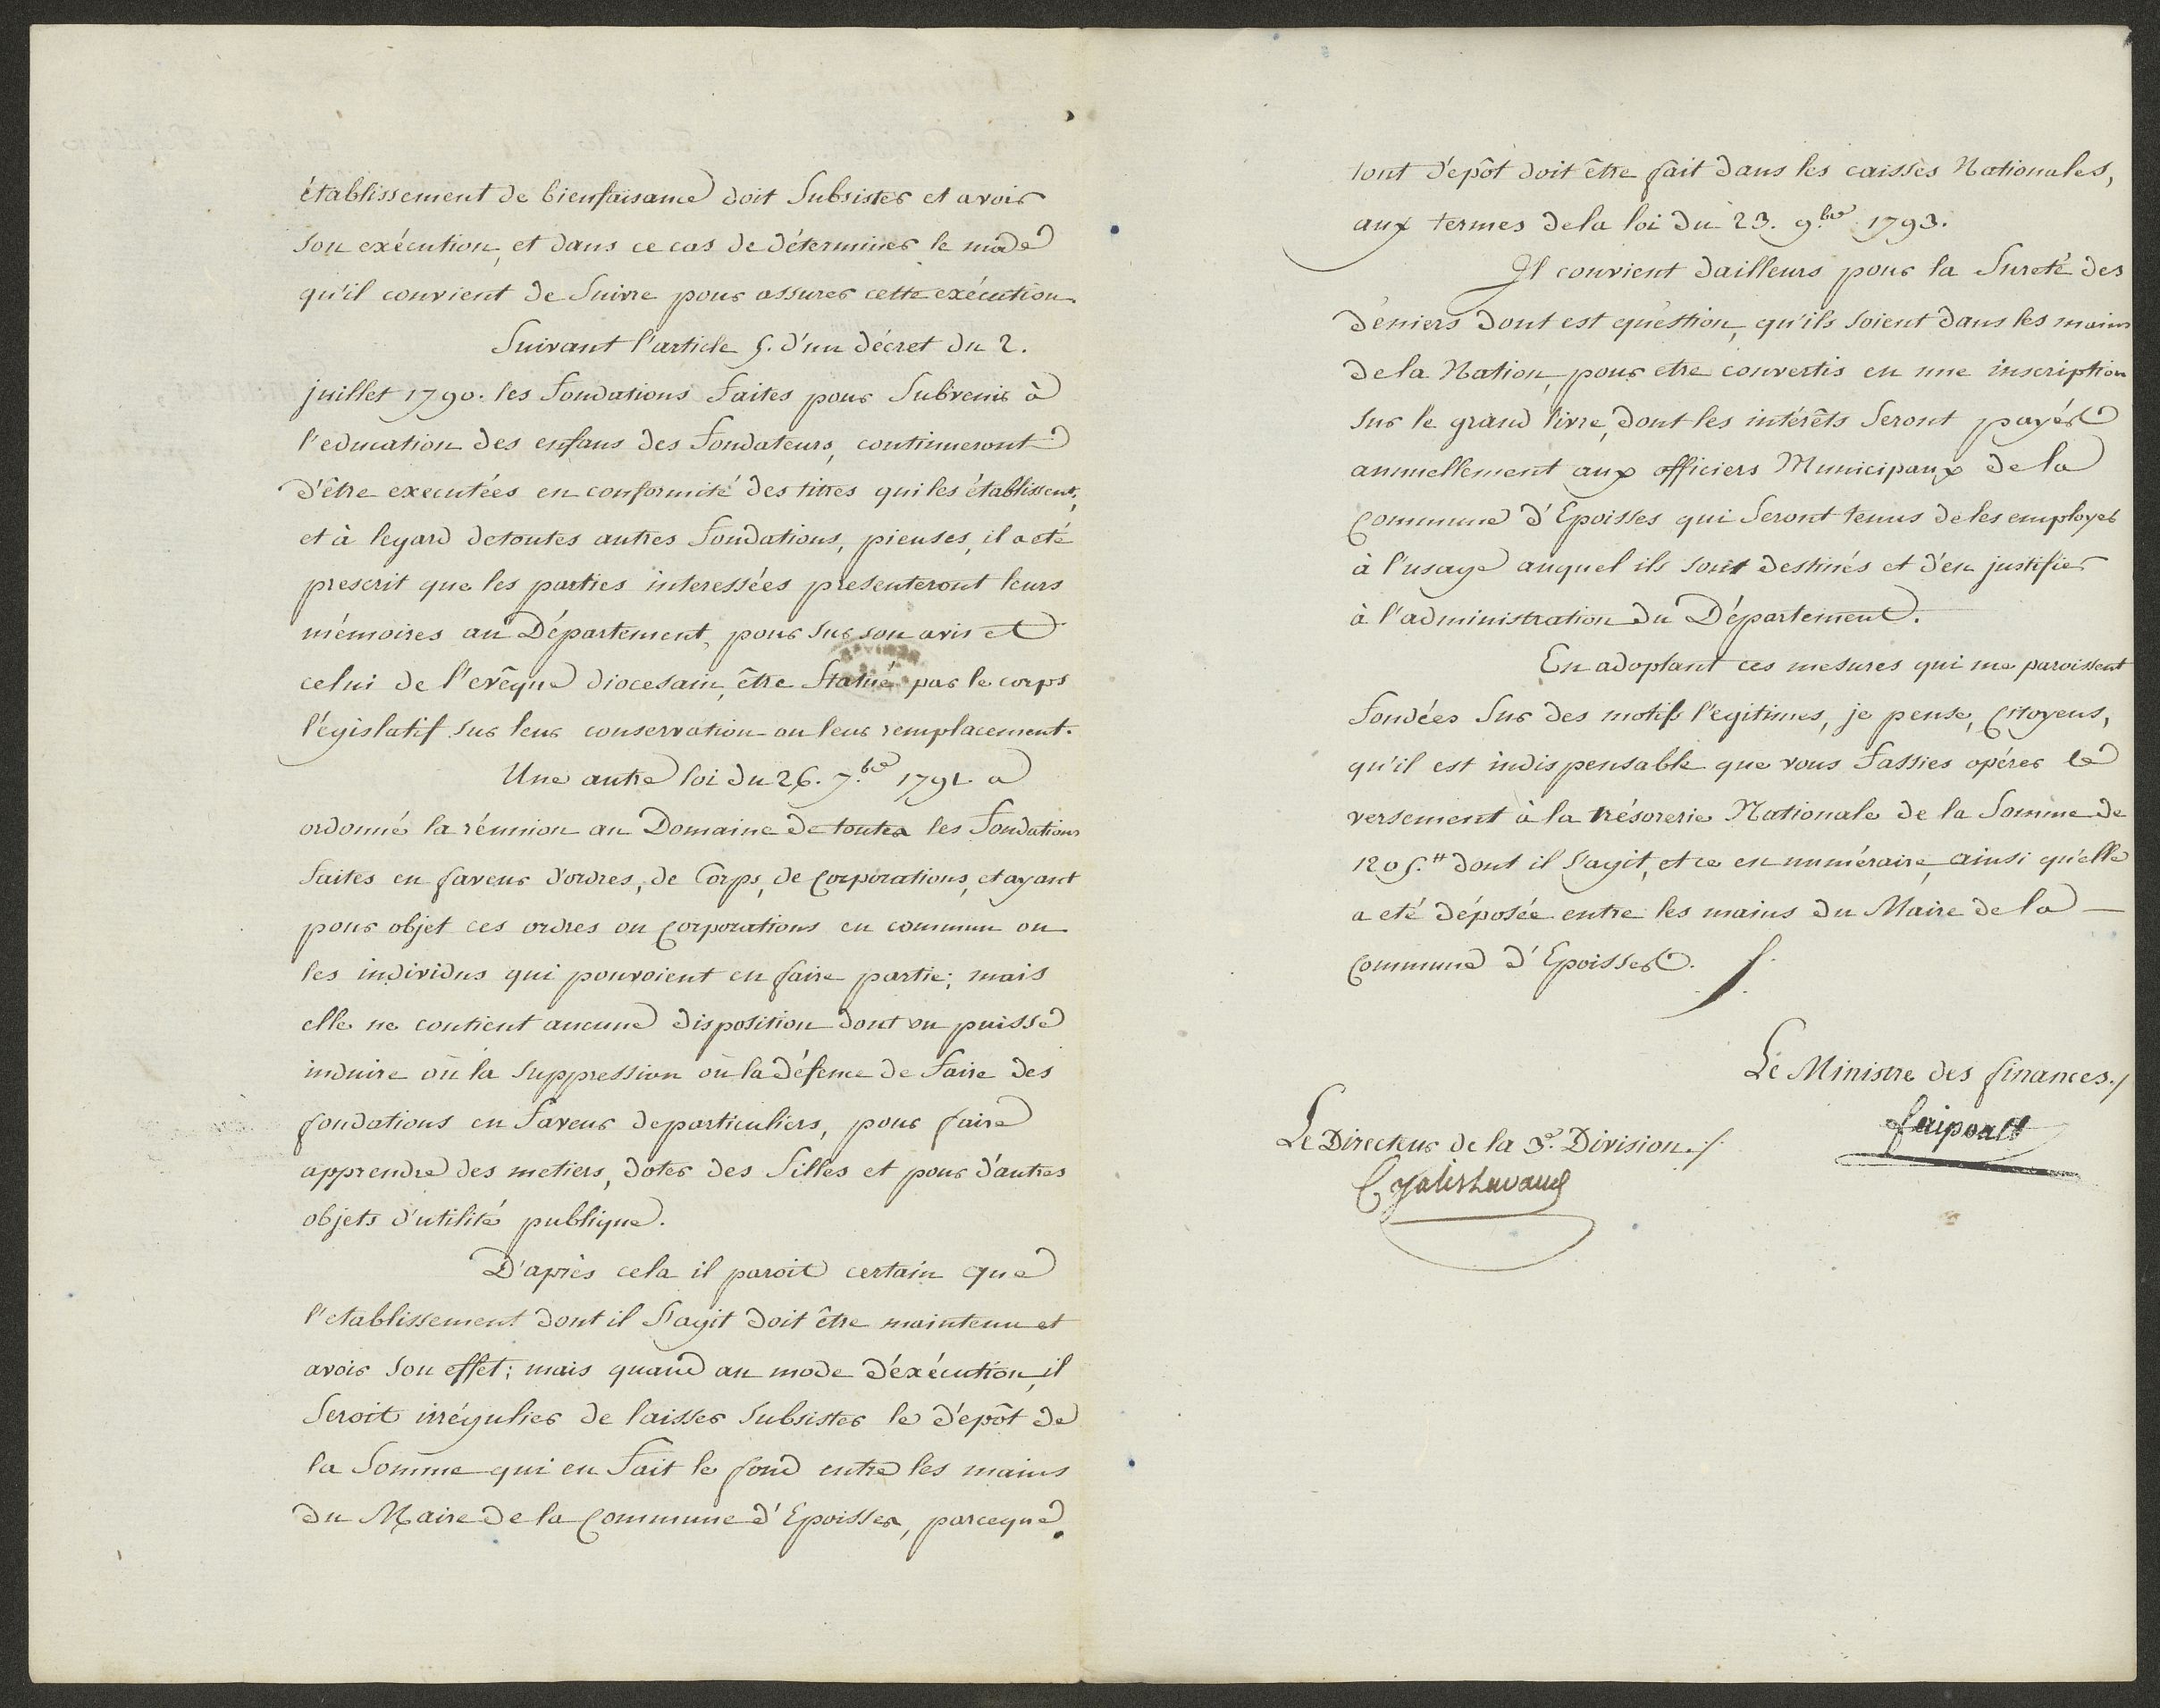 établissement de bienfaisance doit Subsister et avoir
son exécution, et dans ce cas de déterminer le mode
qu'il convient de Suivre pour assurer cette exécution.
Suivant l'article 5. d'un décret du 2.
juillet 1790. les fondations faites pour Subvenir à
l'education des enfans des fondateurs, continueront
d'être executées en conformité des titres qui les établissent,
et à legard de toutes autres fondations, pieuses, il a été
prescrit que les parties interessées presenteront leurs
mémoires au Département, pour sur son avis et
celui de l'evêque diocesain, être Statué par le corps
législatif sur leur conservation ou leur remplacement.
Une autre loi du 26. 7.bre 1791 a
ordonné la réunion au Domaine de toutes les fondations
faites en faveur d'ordres, de Corps, de Corporations, et ayant
pour objet ces ordres ou Corporations en commun ou
les individus qui pouvoient en faire partie; mais
elle ne contient aucune disposition dont on puisse
induire où la Suppression où la défence de faire des
fondations en faveur de particuliers, pour faire
apprendre des metiers, doter des filles et pour d'autres
objets d'utilité publique.
D'après cela il paroit certain que
l'etablissement dont il S'agit doit être maintenu et
avoir Son effet; mais quand au mode d'éxécution, il
Seroit irrégulier de laisser Subsister le dépôt de
la Somme qui en fait le fond entre les mains
du Maire de la Commune d'Epoisses, parceque
tout dépôt doit être fait dans les caisses Nationales,
aux termes de la loi du 23. 9.bre 1793.
Il convient dailleurs pour la Sureté des
deniers dont est question, qu'ils soient dans les mains
de la Nation, pour etre convertis en une inscription
sur le grand livre, dont les intérêts Seront payés
annuellement aux officiers Municipaux de la
Commune d'Epoisses qui Seront tenus de les employer
à l'usage auquel ils sont destinés et d'en justifier
à l'administration du Département.
En adoptant ces mesures qui me paroissent
fondées Sur des motifs légitimes, je pense, Citoyens,
qu'il est indispensable que vous fassies opérer le
versement à la trésorerie Nationale de la Somme de
1205.₶ dont il S'agit, et ce en numéraire, ainsi qu'elle
a eté déposée entre les mains du Maire de la
Commune d'Epoisses.
Le Ministre des finances./
faipoult
Le Directeur de la 3e. Division./